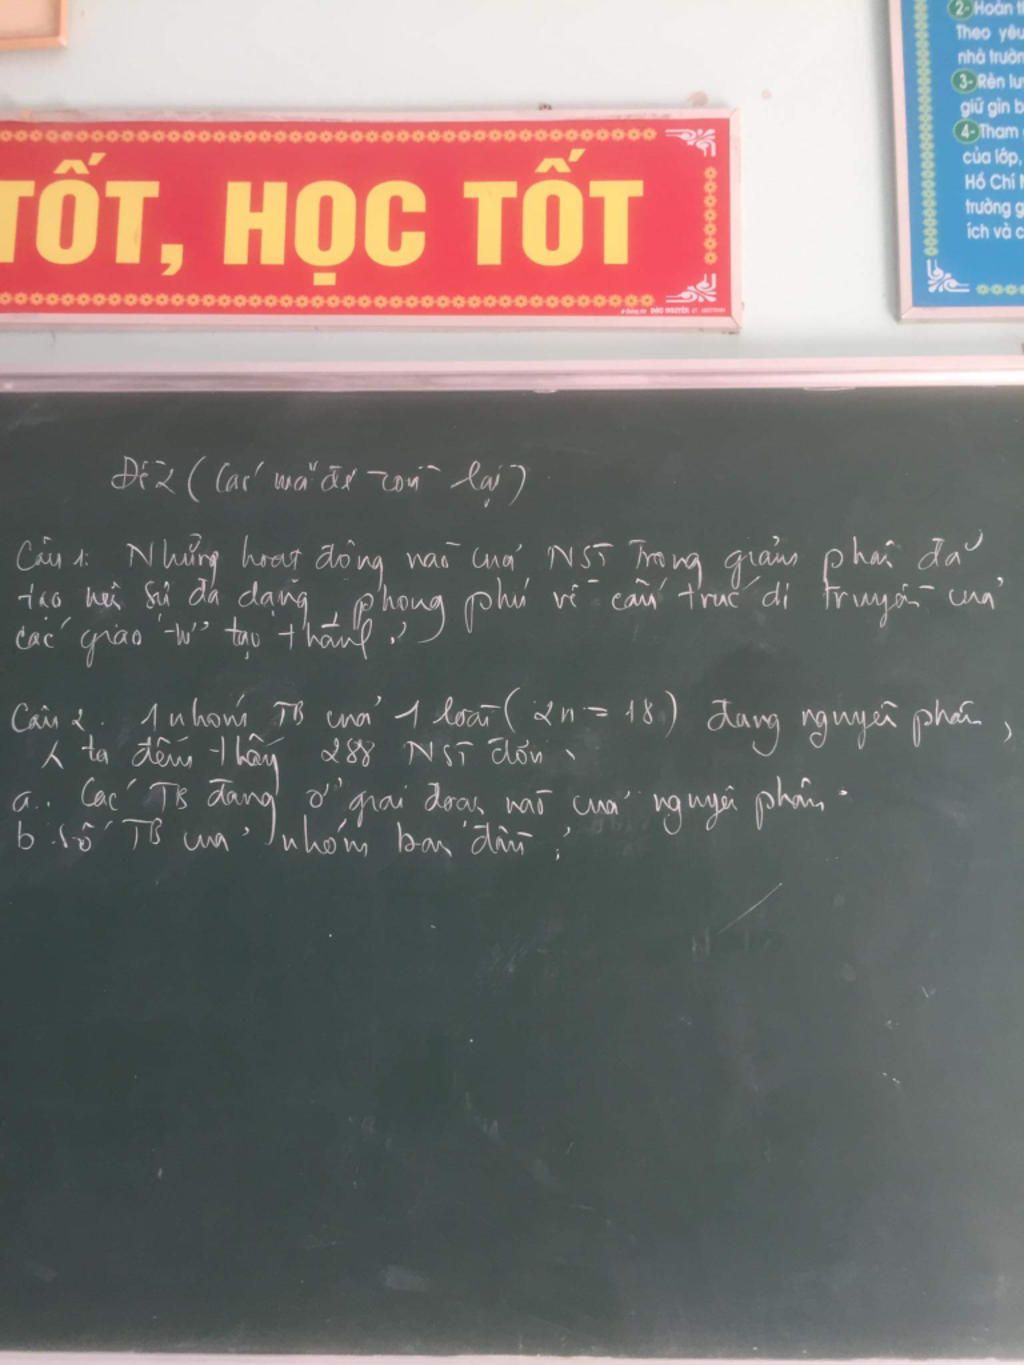 TỐT, HỌC TỐT
2- Hoàn
Theo yêu
nhà trườn
3- Rèn lu
giữ gìn b
4- Tham
của lớp,
Hồ Chí
trường g
ích và c
Đề 2 (Các mã đề còn lại)
Câu 1: Những hoạt động nào của NST trong giảm phân đã
tạo nên sự đa dạng, phong phú về cấu trúc di truyền của
các giao tử tạo thành?
Câu 2. 1 nhóm TB của 1 loài (2n = 18) đang nguyên phân,
ta đếm thấy 288 NST đơn.
a. Các TB đang ở giai đoạn nào của nguyên phân.
b. Số TB của nhóm ban đầu?